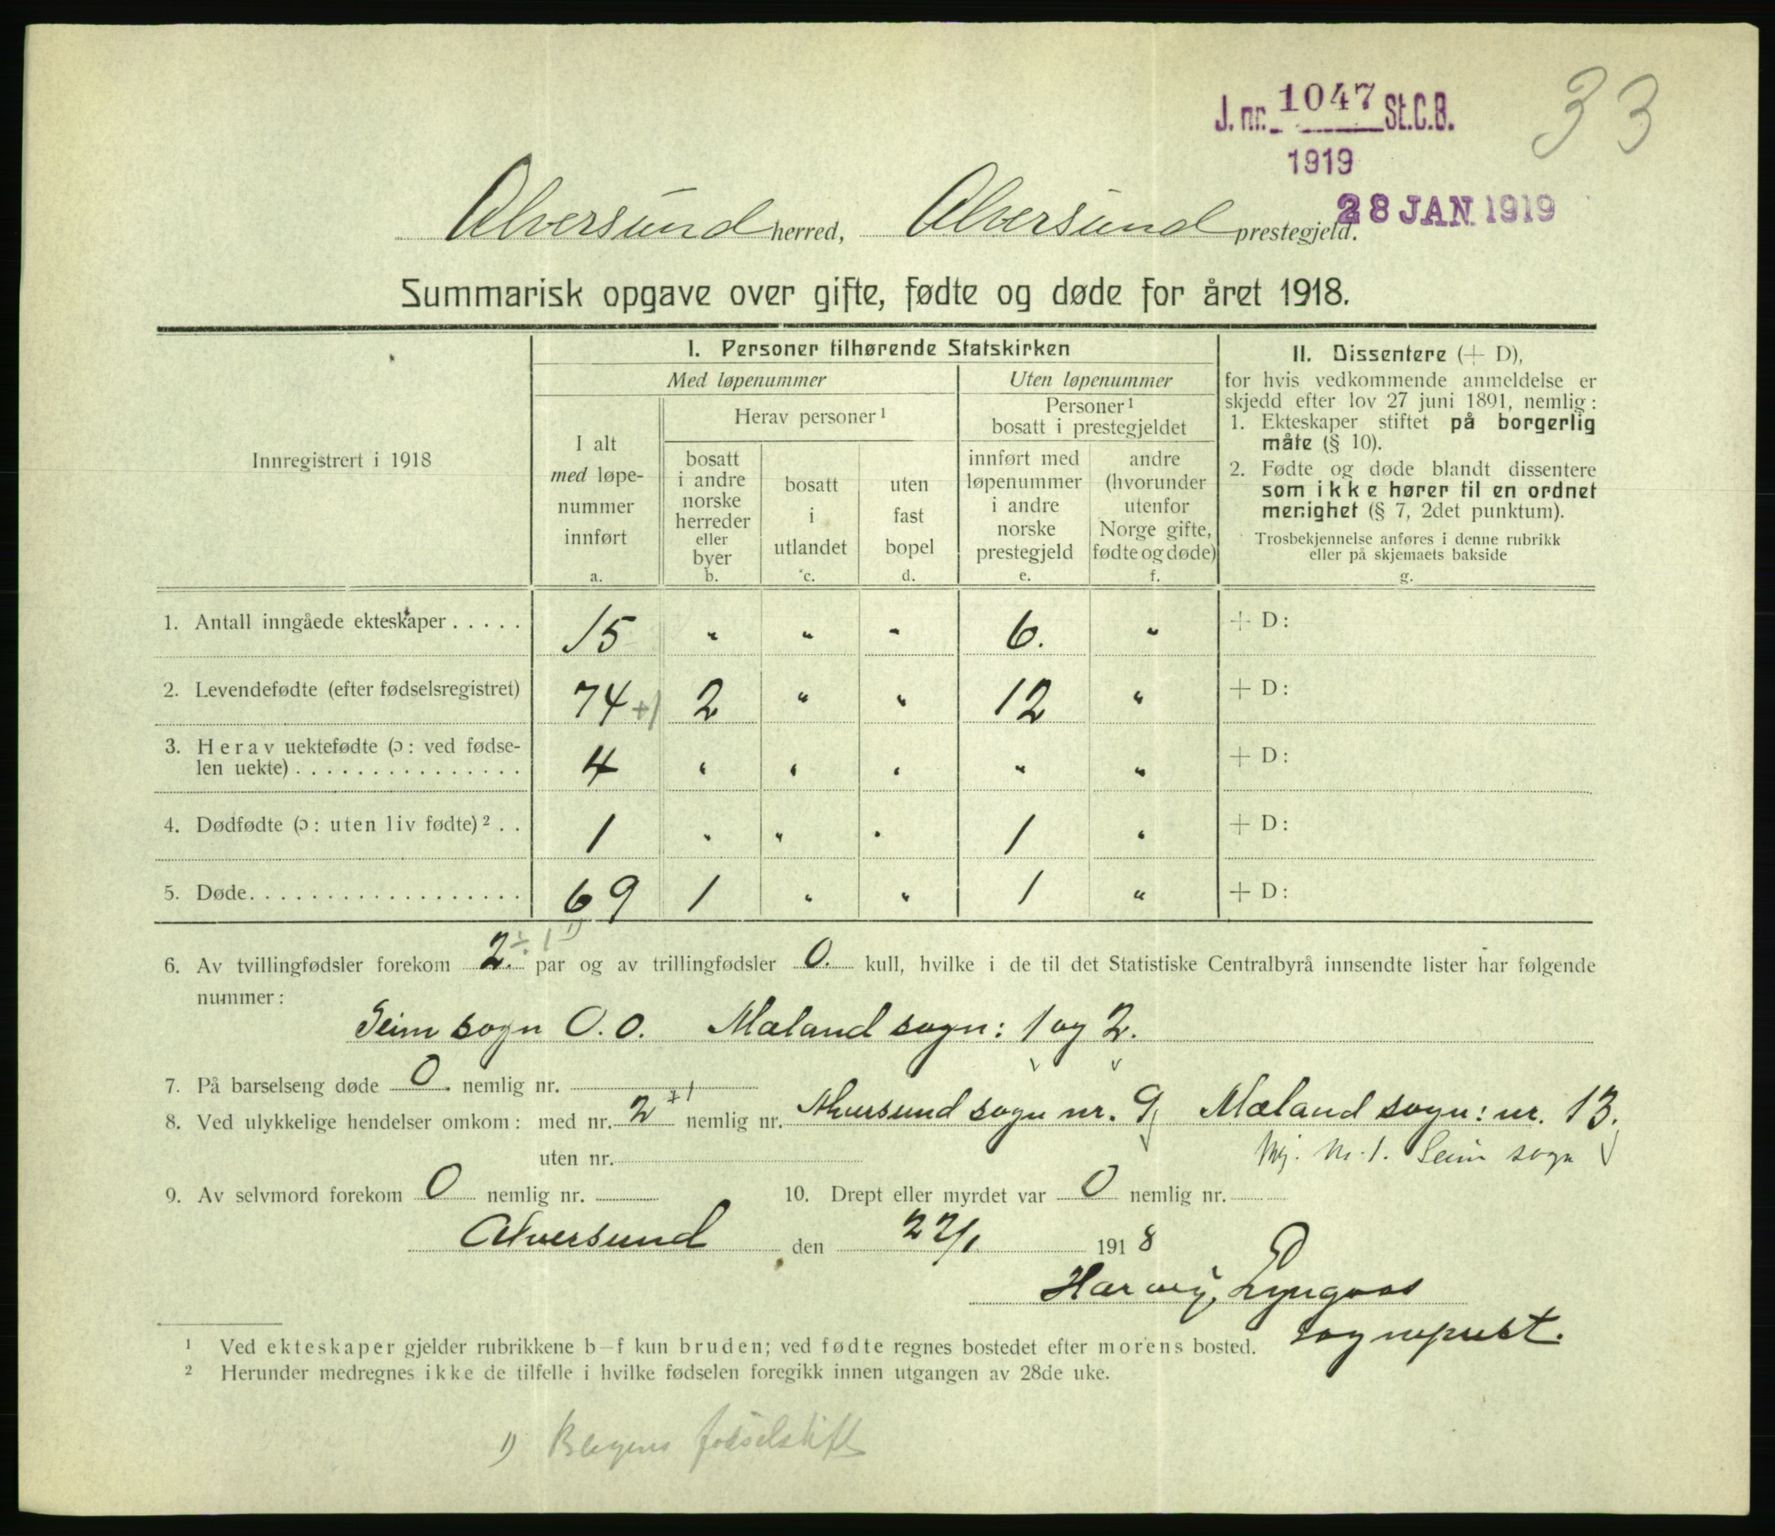 J. nr. 1047 St.C.B.
1919
28 JAN 1919
33
Alversund herred, Alversund prestegjeld.
Summarisk opgave over gifte, fødte og døde for året 1918.
Innregistrert i 1918
I. Personer tilhørende Statskirken
Med løpenummer
Uten løpenummer
I alt med løpe-nummer innført
a.
Herav personer¹
bosatt i andre norske herreder eller byer
b.
bosatt i utlandet
c.
uten fast bopel
d.
Personer¹ bosatt i prestegjeldet
innført med løpenummer i andre norske prestegjeld
e.
andre (hvorunder utenfor Norge gifte, fødte og døde)
f.
II. Dissentere (+ D),
for hvis vedkommende anmeldelse er
skjedd efter lov 27 juni 1891, nemlig:
1. Ekteskaper stiftet på borgerlig
måte (§ 10).
2. Fødte og døde blandt dissentere
som ikke hører til en ordnet
menighet (§ 7, 2det punktum).
Trosbekjennelse anføres i denne rubrikk
eller på skjemaets bakside
g.
1. Antall inngåede ekteskaper . . . . . 15 " " " 6. " + D:
2. Levendefødte (efter fødselsregistret) 74 +1 2 " " 12 " + D:
3. Herav uektefødte (ɔ: ved fødse-
len uekte) . . . . . . . . . . . . . . . 4 " " " " " + D:
4. Dødfødte (ɔ: uten liv fødte)² . . 1 " " " 1 " + D:
5. Døde. . . . . . . . . . . . . . . . . . 69 1 " " 1 " + D:
6. Av tvillingfødsler forekom 2. ÷ 1 ¹) par og av trillingfødsler 0. kull, hvilke i de til det Statistiske Centralbyrå innsendte lister har følgende
nummer:
Seim sogn 0.0. Mæland sogn: 1 og 2.
7. På barselseng døde 0. nemlig nr.
8. Ved ulykkelige hendelser omkom: med nr. 2 +1 nemlig nr. Alversund sogn nr. 9, Mæland sogn: nr. 13.
uten nr. nr. 1. Seim sogn
9. Av selvmord forekom 0 nemlig nr. 10. Drept eller myrdet var 0 nemlig nr.
Alversund den 22/1 1918
Lyngvos
sogneprest.
¹ Ved ekteskaper gjelder rubrikkene b–f kun bruden; ved fødte regnes bostedet efter morens bosted.
² Herunder medregnes ikke de tilfelle i hvilke fødselen foregikk innen utgangen av 28de uke.
1) Bergens fødselstift